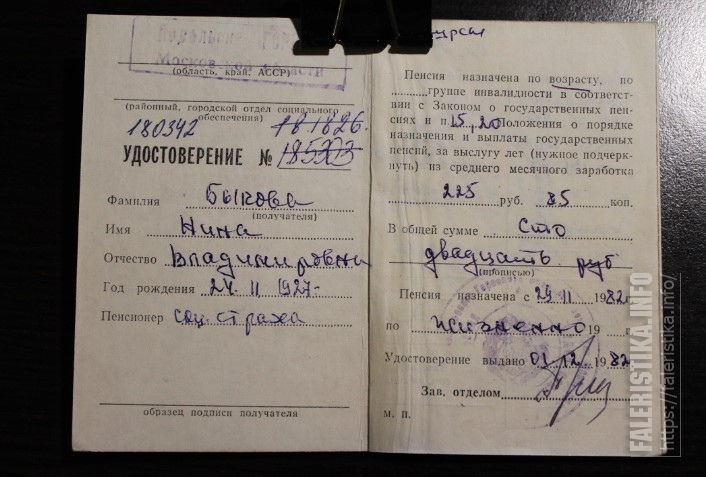 Московской области
(область, край, АССР)
(районный, городской отдел социального
обеспечения)
180342 181826.
УДОСТОВЕРЕНИЕ № 185303
Фамилия Быкова
(получателя)
Имя Нина
Отчество Владимировна
Год рождения 24 11 1927
Пенсионер соц. страха
образец подписи получателя
Пенсия назначена по возрасту, по
группе инвалидности в соответст-
вии с Законом о государственных пен-
сиях и п. 15, 20 Положения о порядке
назначения и выплаты государственных
пенсий, за выслугу лет (нужное подчерк-
нуть) из среднего месячного заработка
225 руб. 35 коп.
В общей сумме Сто
двадцать руб
(прописью)
Пенсия назначена с 29 11 1982
по жизненно 19 г.
Удостоверение выдано 01 12 1982
Зав. отделом
м. п.
FALERISTIKA.INFO
https://faleristika.info/